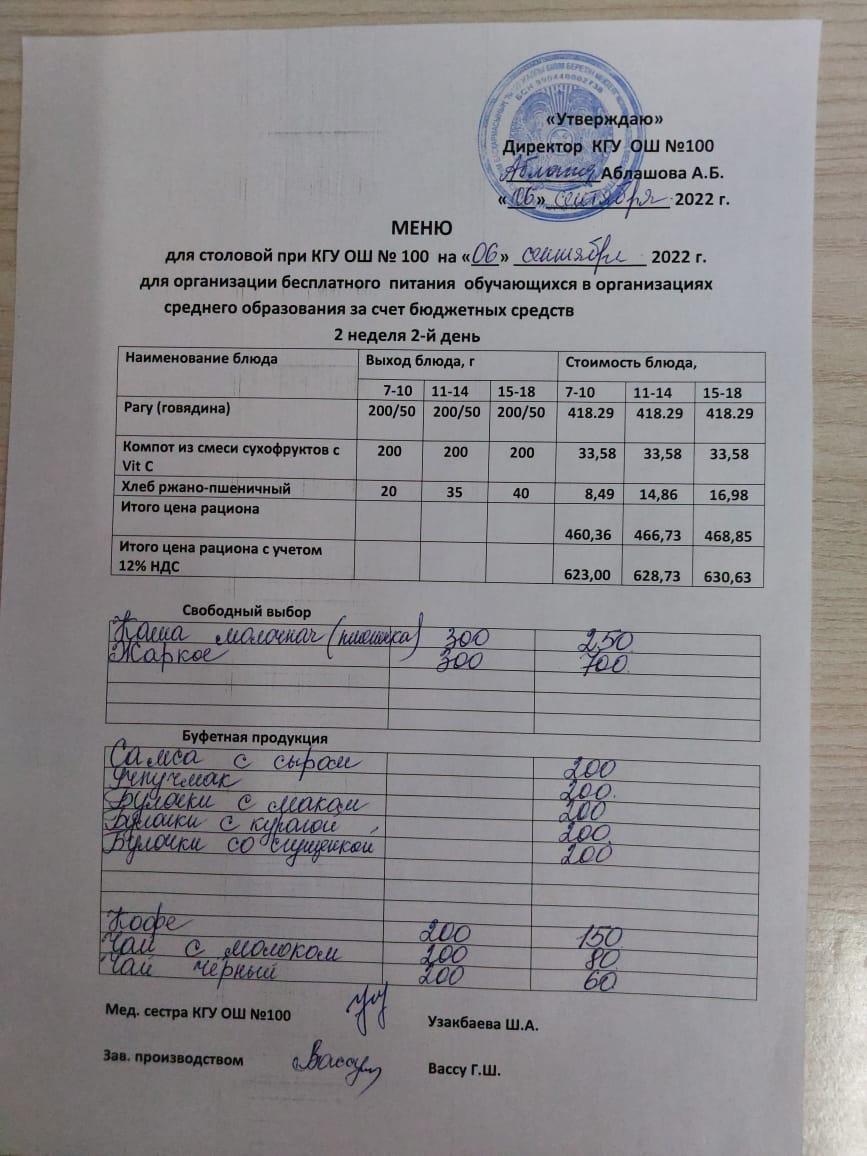 БСН 990440002738
«Утверждаю»
Директор КГУ ОШ №100
Аблашова А.Б.
«06» сентября 2022 г.
МЕНЮ
для столовой при КГУ ОШ № 100 на «06» сентября 2022 г.
для организации бесплатного питания обучающихся в организациях
среднего образования за счет бюджетных средств
2 неделя 2-й день
Наименование блюда Выход блюда, г Стоимость блюда,
7-10 11-14 15-18 7-10 11-14 15-18
Рагу (говядина) 200/50 200/50 200/50 418.29 418.29 418.29
Компот из смеси сухофруктов с 200 200 200 33,58 33,58 33,58
Vit C
Хлеб ржано-пшеничный 20 35 40 8,49 14,86 16,98
Итого цена рациона
460,36 466,73 468,85
Итого цена рациона с учетом
12% НДС 623,00 628,73 630,63
Свободный выбор
Каша молочная 300 250
Жаркое 300 700
Буфетная продукция
Самса с сыром 200
Учпучмак 200
Булочки с маком 200
Булочки с курагой 200
Булочки со сгущенкой 200
Кофе 200 150
Чай с молоком 200 80
Чай чёрный 200 60
Мед. сестра КГУ ОШ №100 Узакбаева Ш.А.
Зав. производством Вассу Г.Ш.